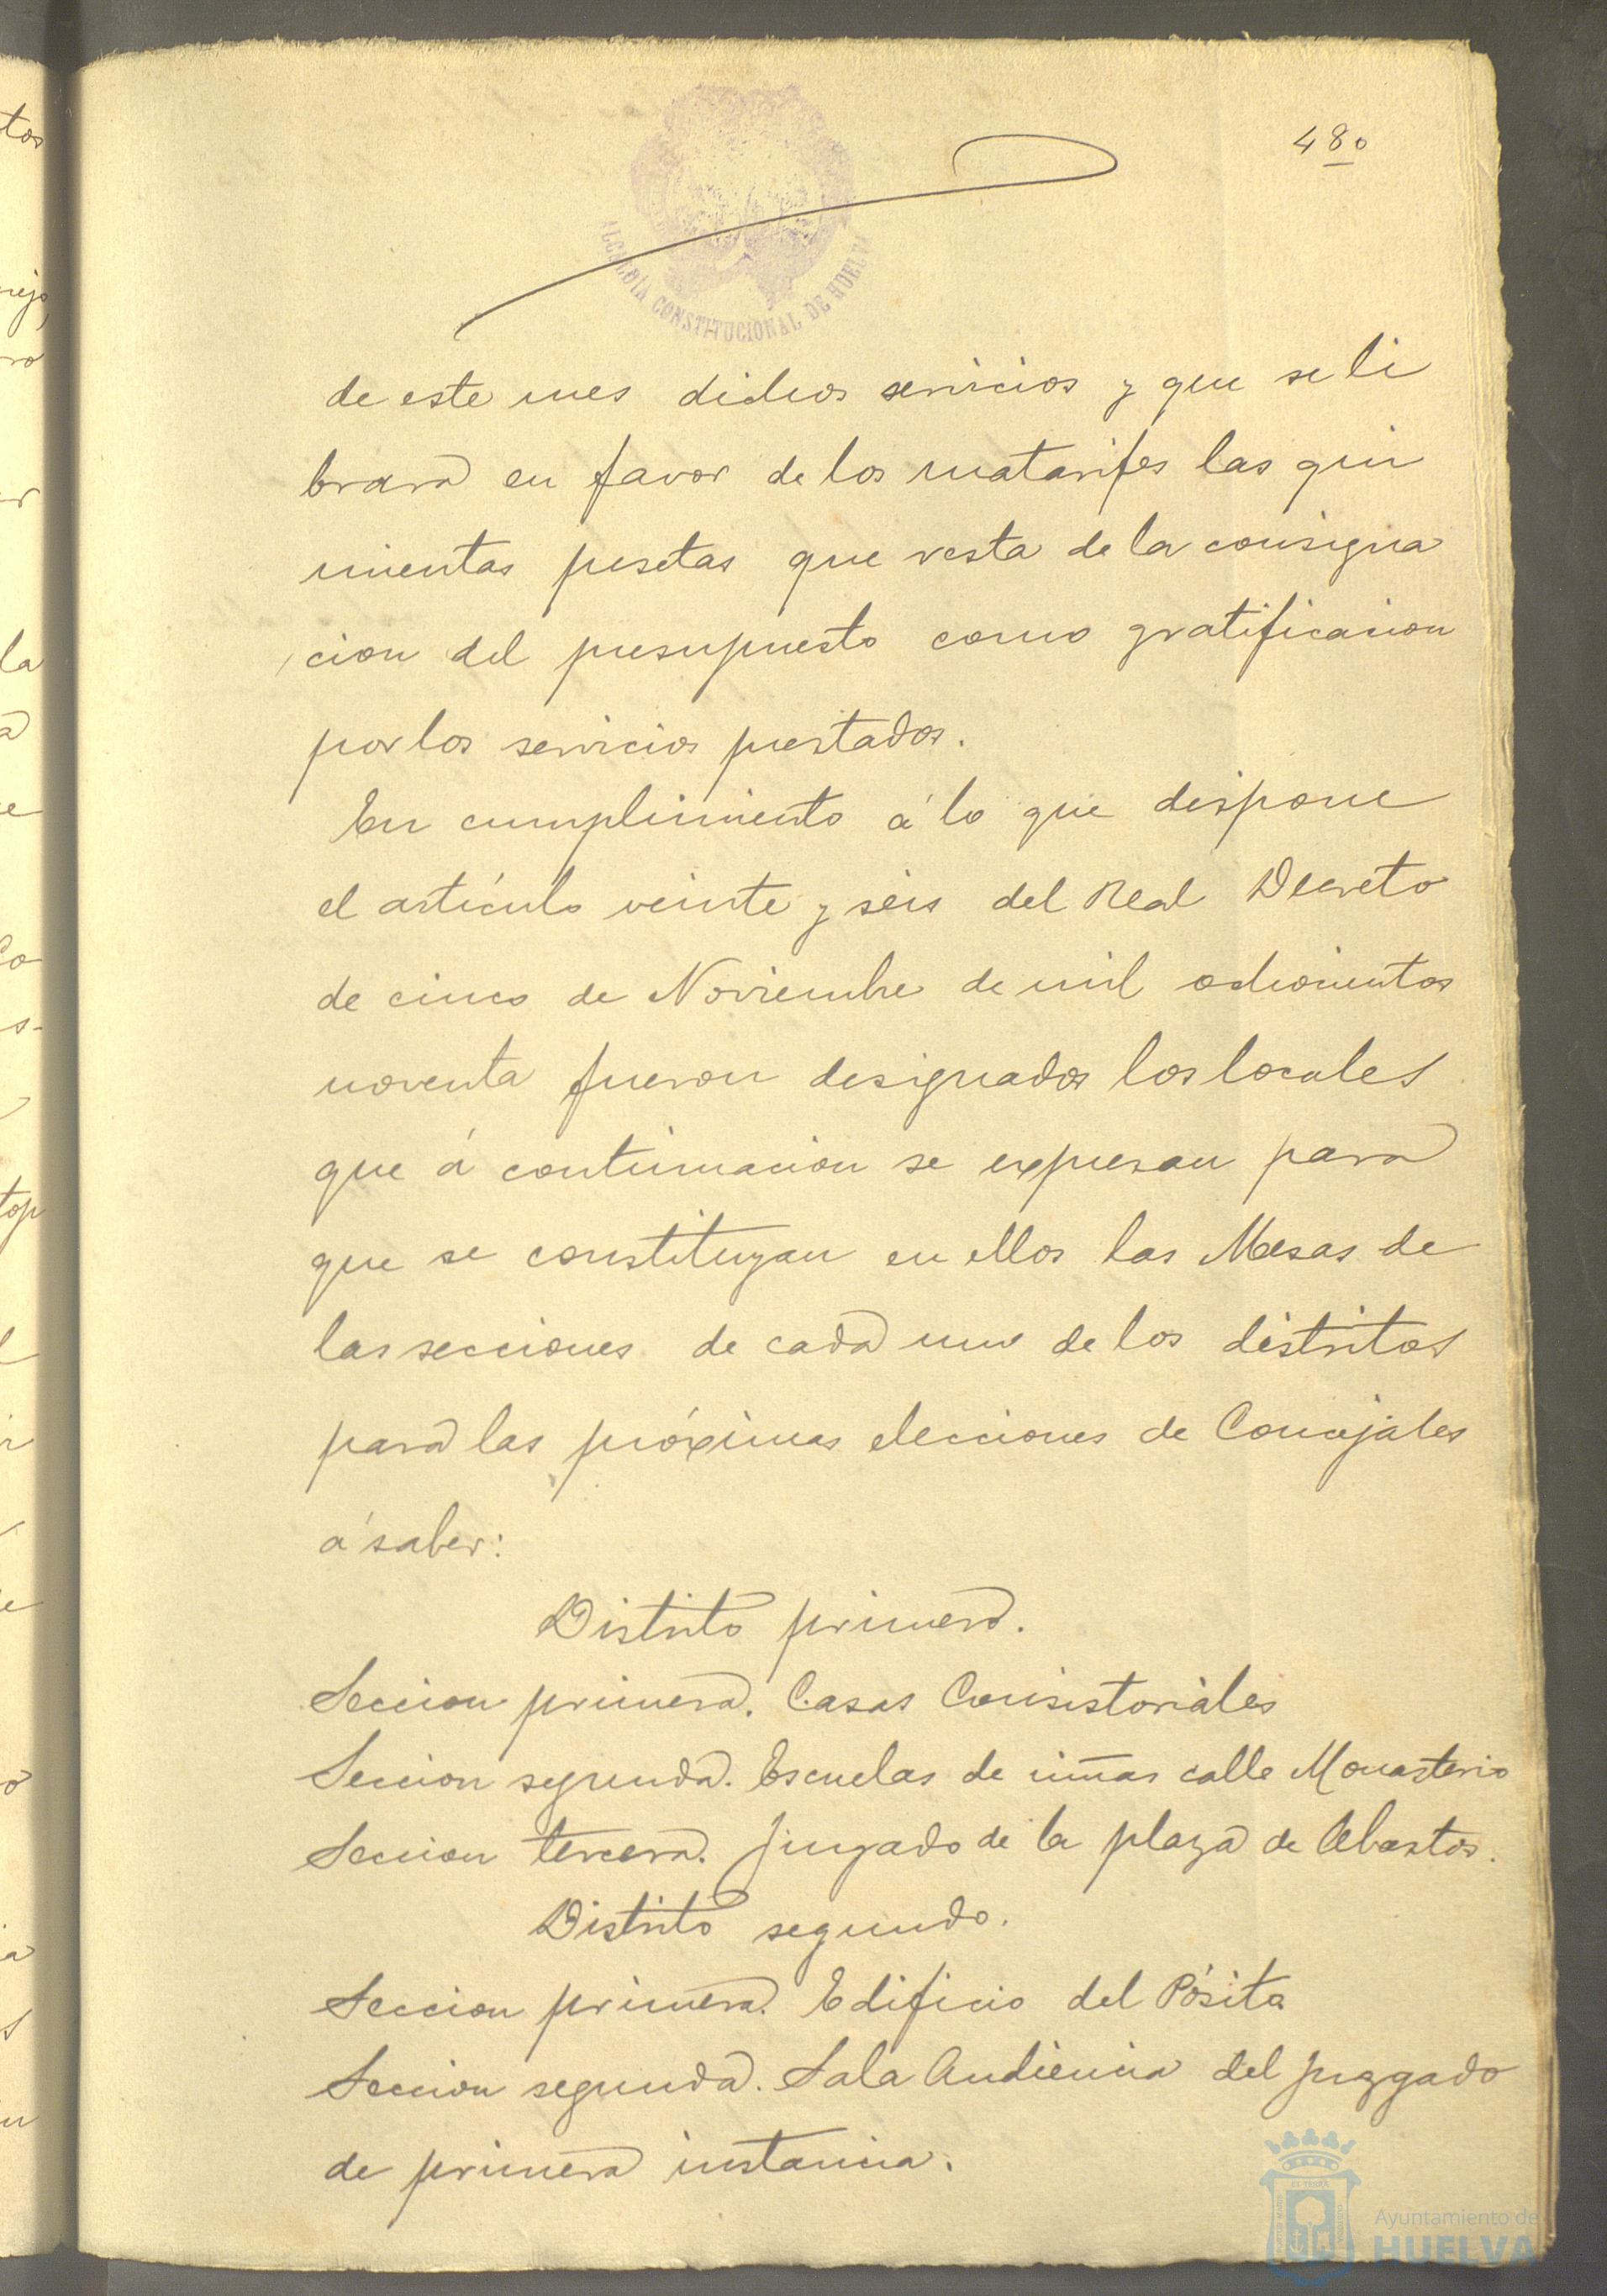 480
ALCALDÍA CONSTITUCIONAL DE HUELVA
de este mes dichos servicios y que se li
brara en favor de los matarifes las qui
nientas pesetas que resta de la consigna
cion del presupuesto como gratificacion
por los servicios prestados.
En cumplimiento á lo que dispone
el artículo veinte y seis del Real Decreto
de cinco de Noviembre de mil ochocientos
noventa fueron designados los locales
que á continuacion se expresan para
que se constituyan en ellos las Mesas de
las secciones de cada uno de los distritos
para las próximas elecciones de Concejales
á saber:
Distrito primero.
Seccion primera. Casas Consistoriales
Seccion segunda. Escuelas de niñas calle Monasterio
Seccion tercera. Juzgado de la plaza de Abastos.
Distrito segundo.
Seccion primera. Edificio del Pósito
Seccion segunda. Sala Audiencia del Juzgado
de primera instancia.
Ayuntamiento de
HUELVA